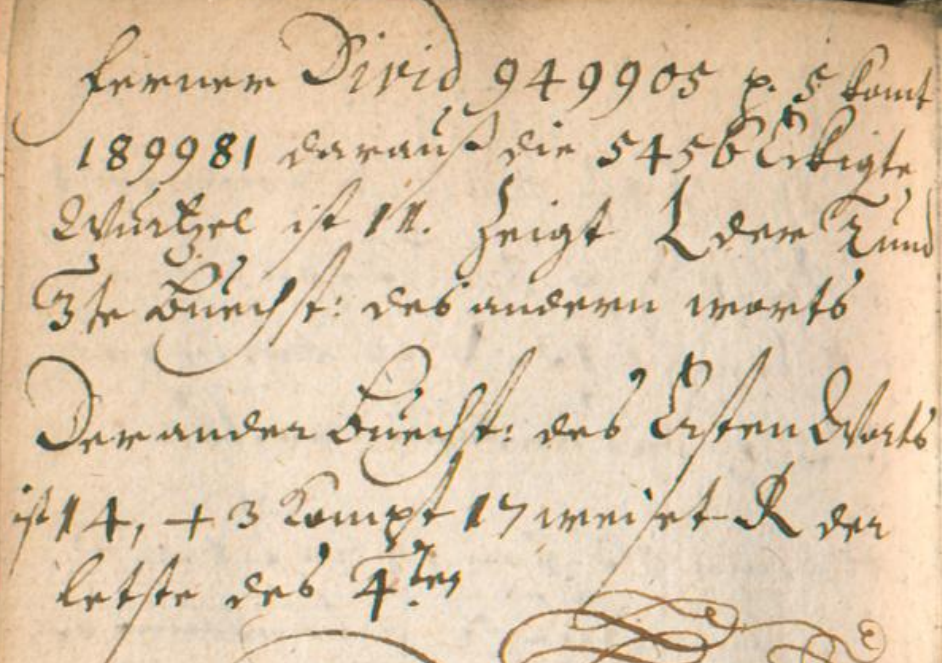 ferner Divid 949905 p. 5 komt
189981 darauß die 3456 Eckigte
Wurtzel ist 11. Zeigt L der 2 und
3te Buechst: des andern worts
Der ander Buechst: des Ersten Worts
ist 14, + 3 Kompt 17 weiset R der
letste des 4ten